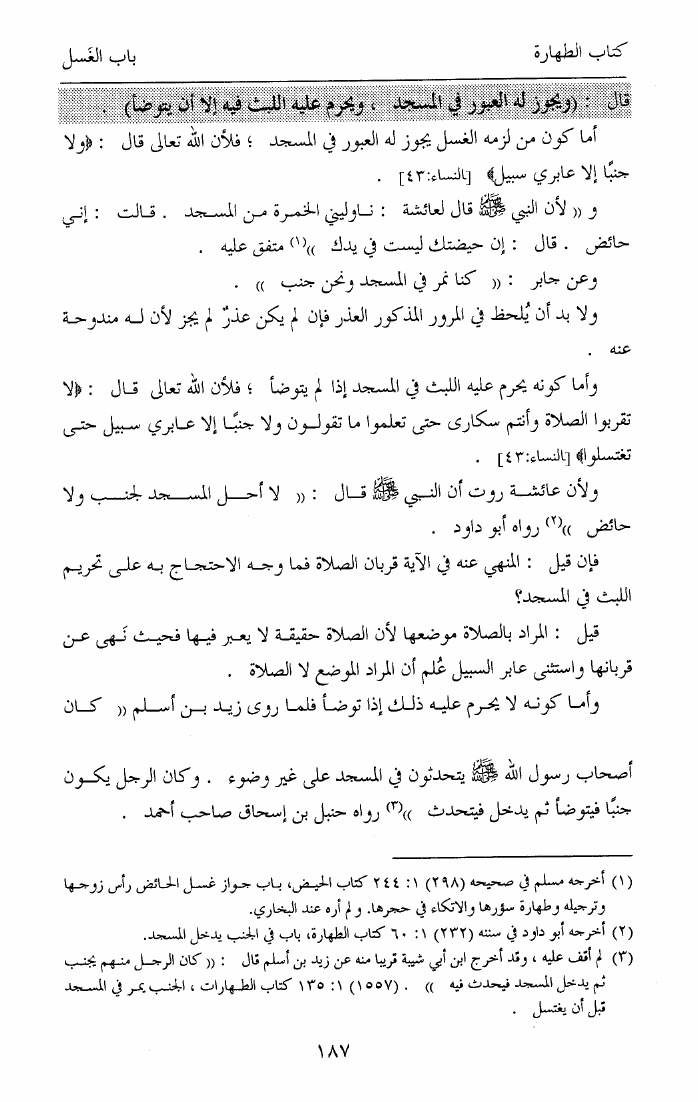 كتاب الطهارة باب الغَسل
قال : (ويجوز له العبور في المسجد ، ويحرم عليه اللبث فيه إلا أن يتوضأ) .
أما كون من لزمه الغسل يجوز له العبور في المسجد ؛ فلأن الله تعالى قال : ﴿ولا
جنبًا إلا عابري سبيل﴾ [النساء:٤٣] .
و « لأن النبي ﷺ قال لعائشة : ناوليني الخمرة من المسجد . قالت : إني
حائض . قال : إن حيضتك ليست في يدك »(١) متفق عليه .
وعن جابر : « كنا نمر في المسجد ونحن جنب » .
ولا بد أن يُلحظ في المرور المذكور العذر فإن لم يكن عذرٌ لم يجز لأن له مندوحة
عنه .
وأما كونه يحرم عليه اللبث في المسجد إذا لم يتوضأ ؛ فلأن الله تعالى قال : ﴿لا
تقربوا الصلاة وأنتم سكارى حتى تعلموا ما تقولون ولا جنبًا إلا عابري سبيل حتى
تغتسلوا﴾ [النساء:٤٣] .
ولأن عائشة روت أن النبي ﷺ قال : « لا أحل المسجد لجنب ولا
حائض »(٢) رواه أبو داود .
فإن قيل : المنهي عنه في الآية قربان الصلاة فما وجه الاحتجاج به على تحريم
اللبث في المسجد؟
قيل : المراد بالصلاة موضعها لأن الصلاة حقيقة لا يعبر فيها فحيث نَهى عن
قربانها واستثنى عابر السبيل عُلم أن المراد الموضع لا الصلاة .
وأما كونه لا يحرم عليه ذلك إذا توضأ فلما روى زيد بن أسلم « كان
أصحاب رسول الله ﷺ يتحدثون في المسجد على غير وضوء . وكان الرجل يكون
جنبًا فيتوضأ ثم يدخل فيتحدث »(٣) رواه حنبل بن إسحاق صاحب أحمد .
(١) أخرجه مسلم في صحيحه (٢٩٨) ١: ٢٤٤ كتاب الحيض، باب جواز غسل الحائض رأس زوجها
وترجيله وطهارة سؤرها والاتكاء في حجرها. و لم أره عند البخاري.
(٢) أخرجه أبو داود في سننه (٢٣٢) ١: ٦٠ كتاب الطهارة، باب في الجنب يدخل المسجد.
(٣) لم أقف عليه ، وقد أخرج ابن أبي شيبة قريبا منه عن زيد بن أسلم قال : « كان الرجل منهم يجنب
ثم يدخل المسجد فيحدث فيه » . (١٥٥٧) ١: ١٣٥ كتاب الطهارات ، الجنب يمر في المسجد
قبل أن يغتسل .
١٨٧